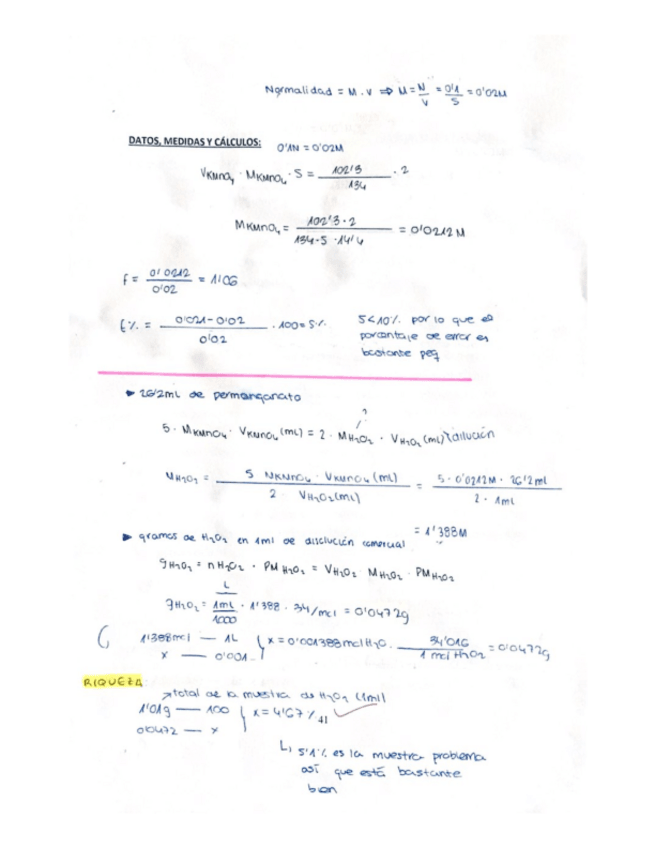 Normalidad = M · V ⇒ M = N/V = 0'1/5 = 0'02M
DATOS, MEDIDAS Y CÁLCULOS: 0'1N = 0'02M
VKMnO4 · MKMnO4 · 5 = 102'3/134 · 2
MKMnO4 = 102'3 · 2/134 · 5 · 14'4 = 0'0212 M
f = 0'0212/0'02 = 1'06
E% = 0'021 - 0'02/0'02 · 100 = 5%
5 < 10% por lo que el
porcentaje de error es
bastante peq
► 26'2 mL de permanganato
?
5 · MKMnO4 · VKMnO4 (mL) = 2 · MH2O2 · VH2O2 (mL) dilución
MH2O2 = 5 MKMnO4 · VKMnO4 (mL)/2 VH2O2 (mL) = 5 · 0'0212M · 26'2 ml/2 · 1ml
= 1'388M
► gramos de H2O2 en 1ml de disolución comercial
gH2O2 = nH2O2 · PMH2O2 = VH2O2 · MH2O2 · PMH2O2
L
gH2O2 = 1mL/1000 · 1'388 · 34/mol = 0'0472g
1'388mol — 1L
x — 0'001
x = 0'001388mol H2O · 34'016/1 mol H2O2 = 0'0472g
RIQUEZA
total de la muestra de H2O2 (1ml)
1'01g — 100
0'0472 — x
x = 4'67%
41
5'1% es la muestra problema
así que está bastante
bien